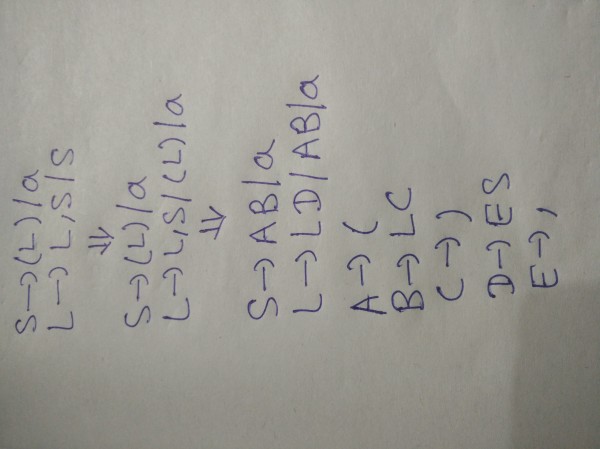 S → (L) / a
L → L,S / S
⇓
S → (L) / a
L → L,S / (L) / a
⇓
S → AB / a
L → LD / AB / a
A → (
B → LC
C → )
D → ES
E → ,